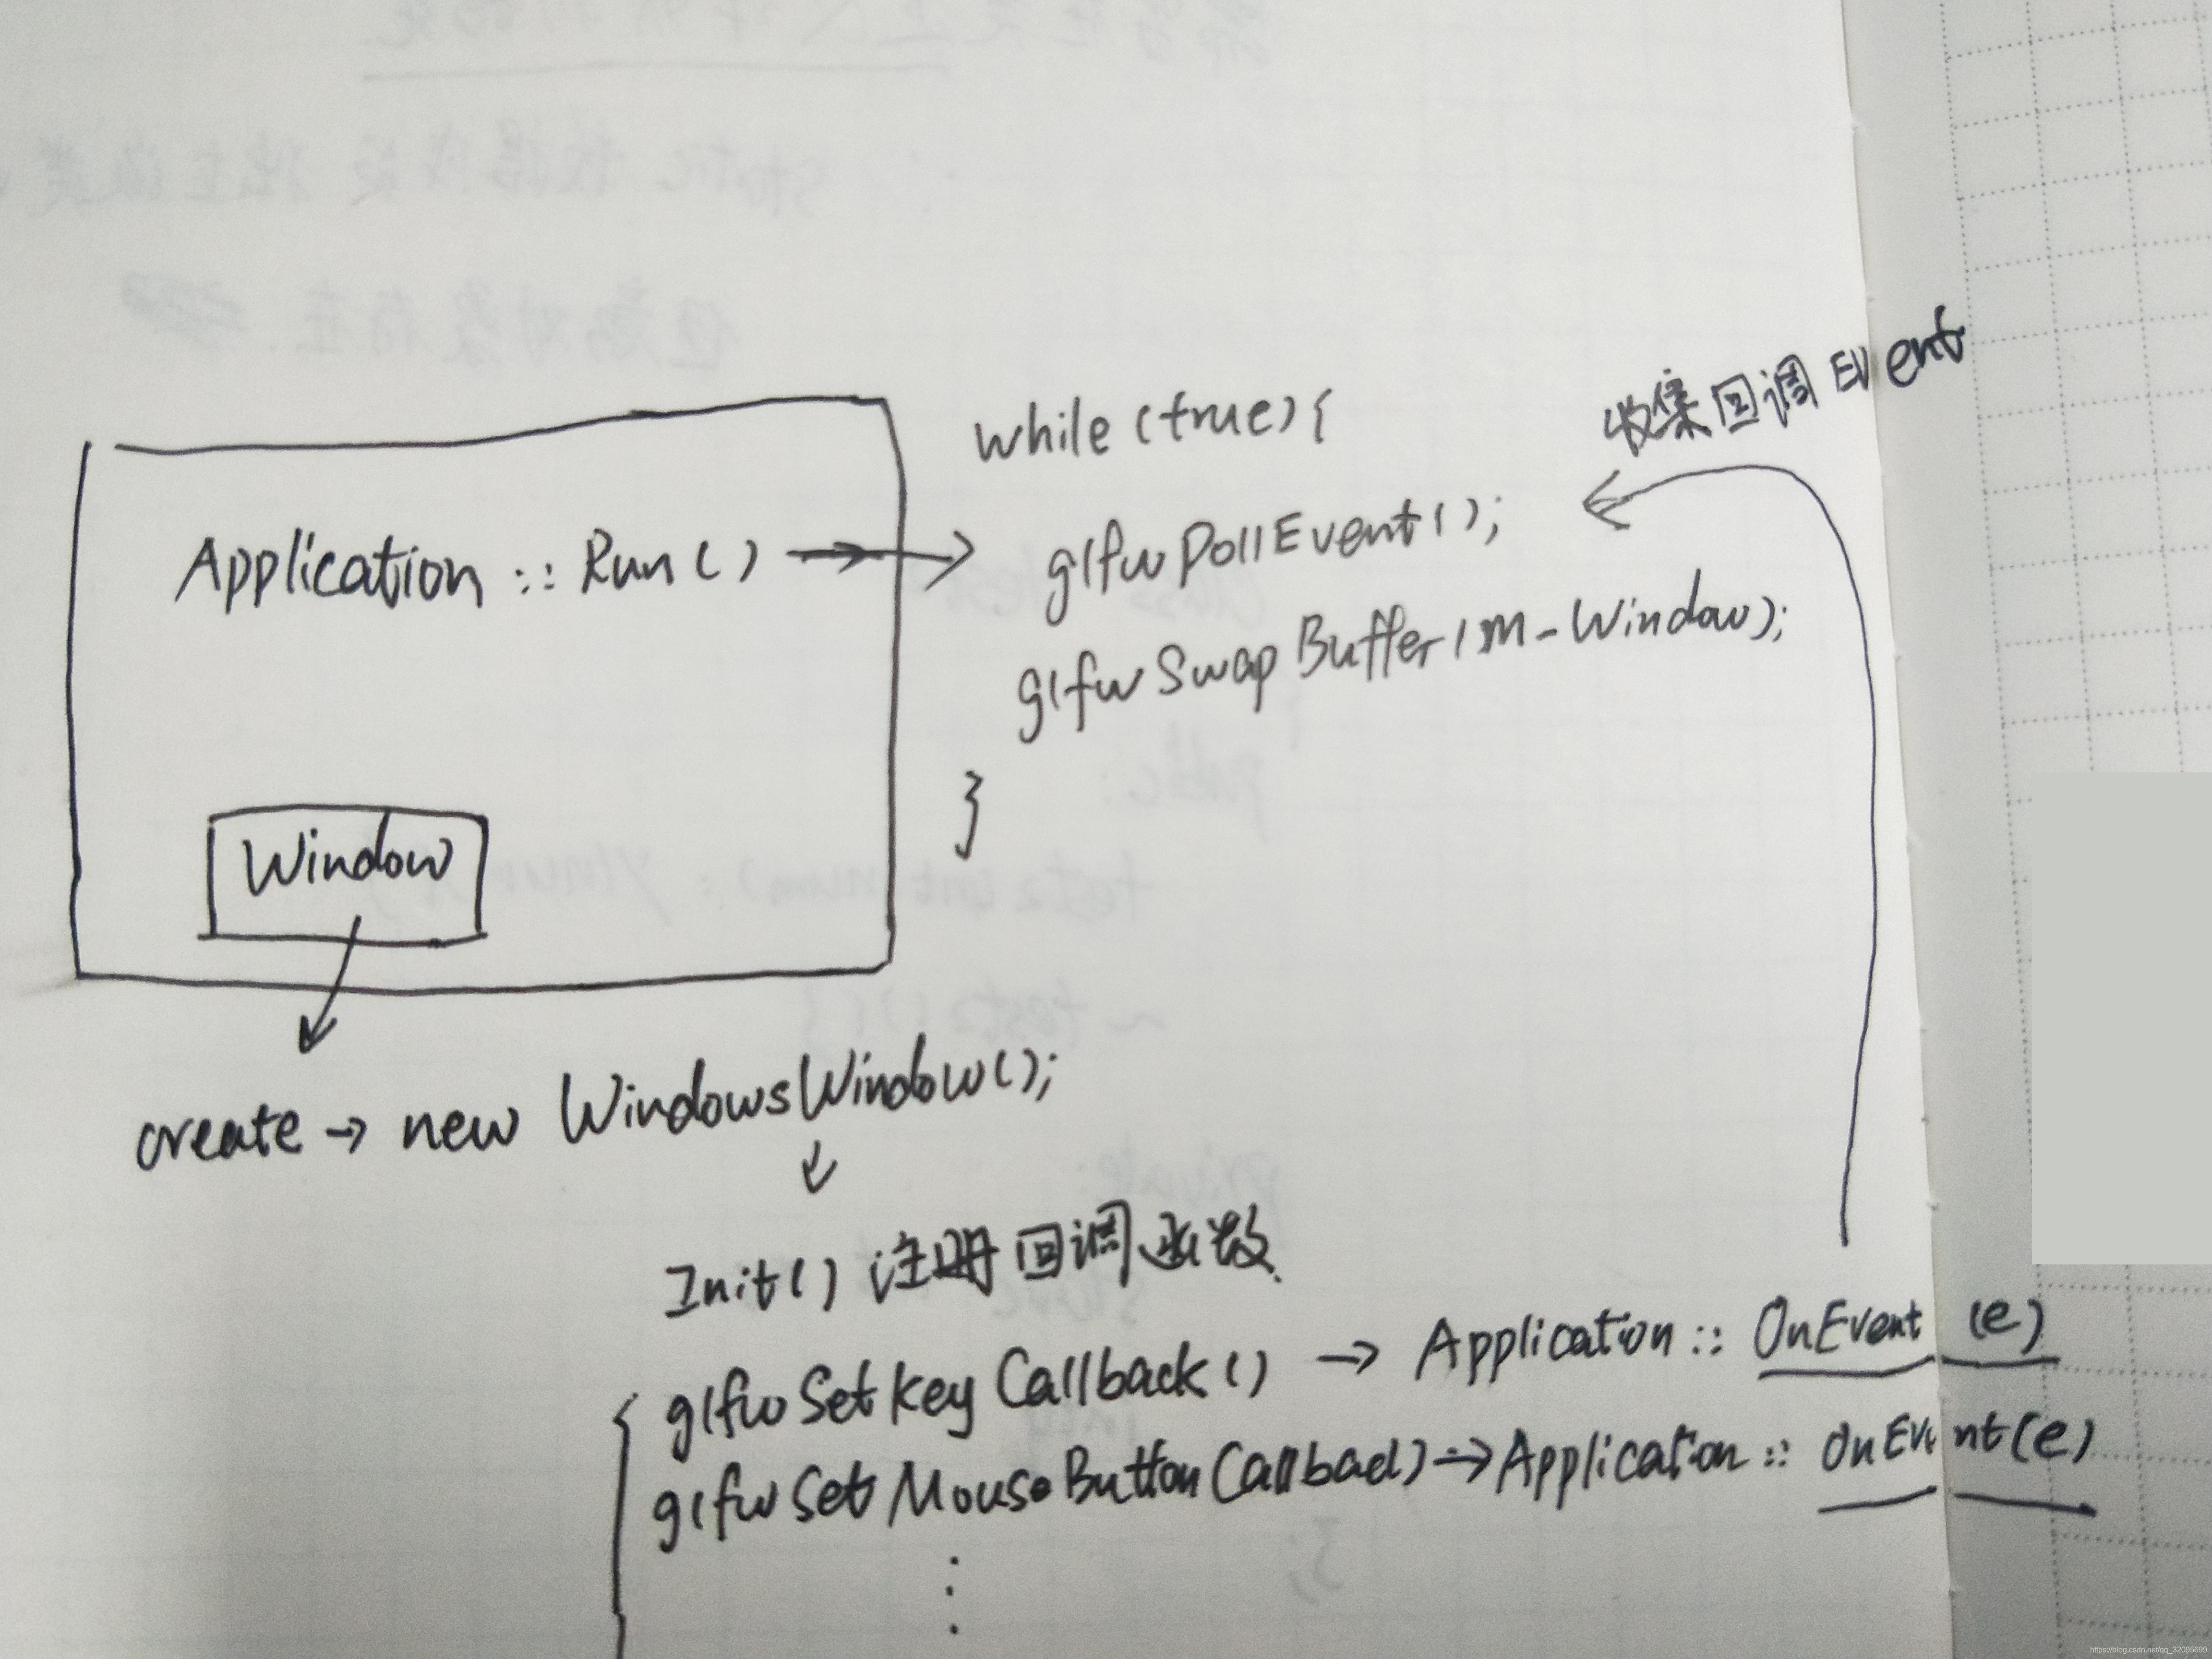 while (true) {
收集回调 Event
Application :: Run ()
glfw PollEvent ();
glfw Swap Buffer (m_Window);
}
Window
create → new WindowsWindow();
Init() 注册回调函数
glfw Set Key Callback () → Application :: OnEvent (e)
glfw Set Mouse Button Callbac() → Application :: OnEvent (e)
https://blog.csdn.net/qq_32095699